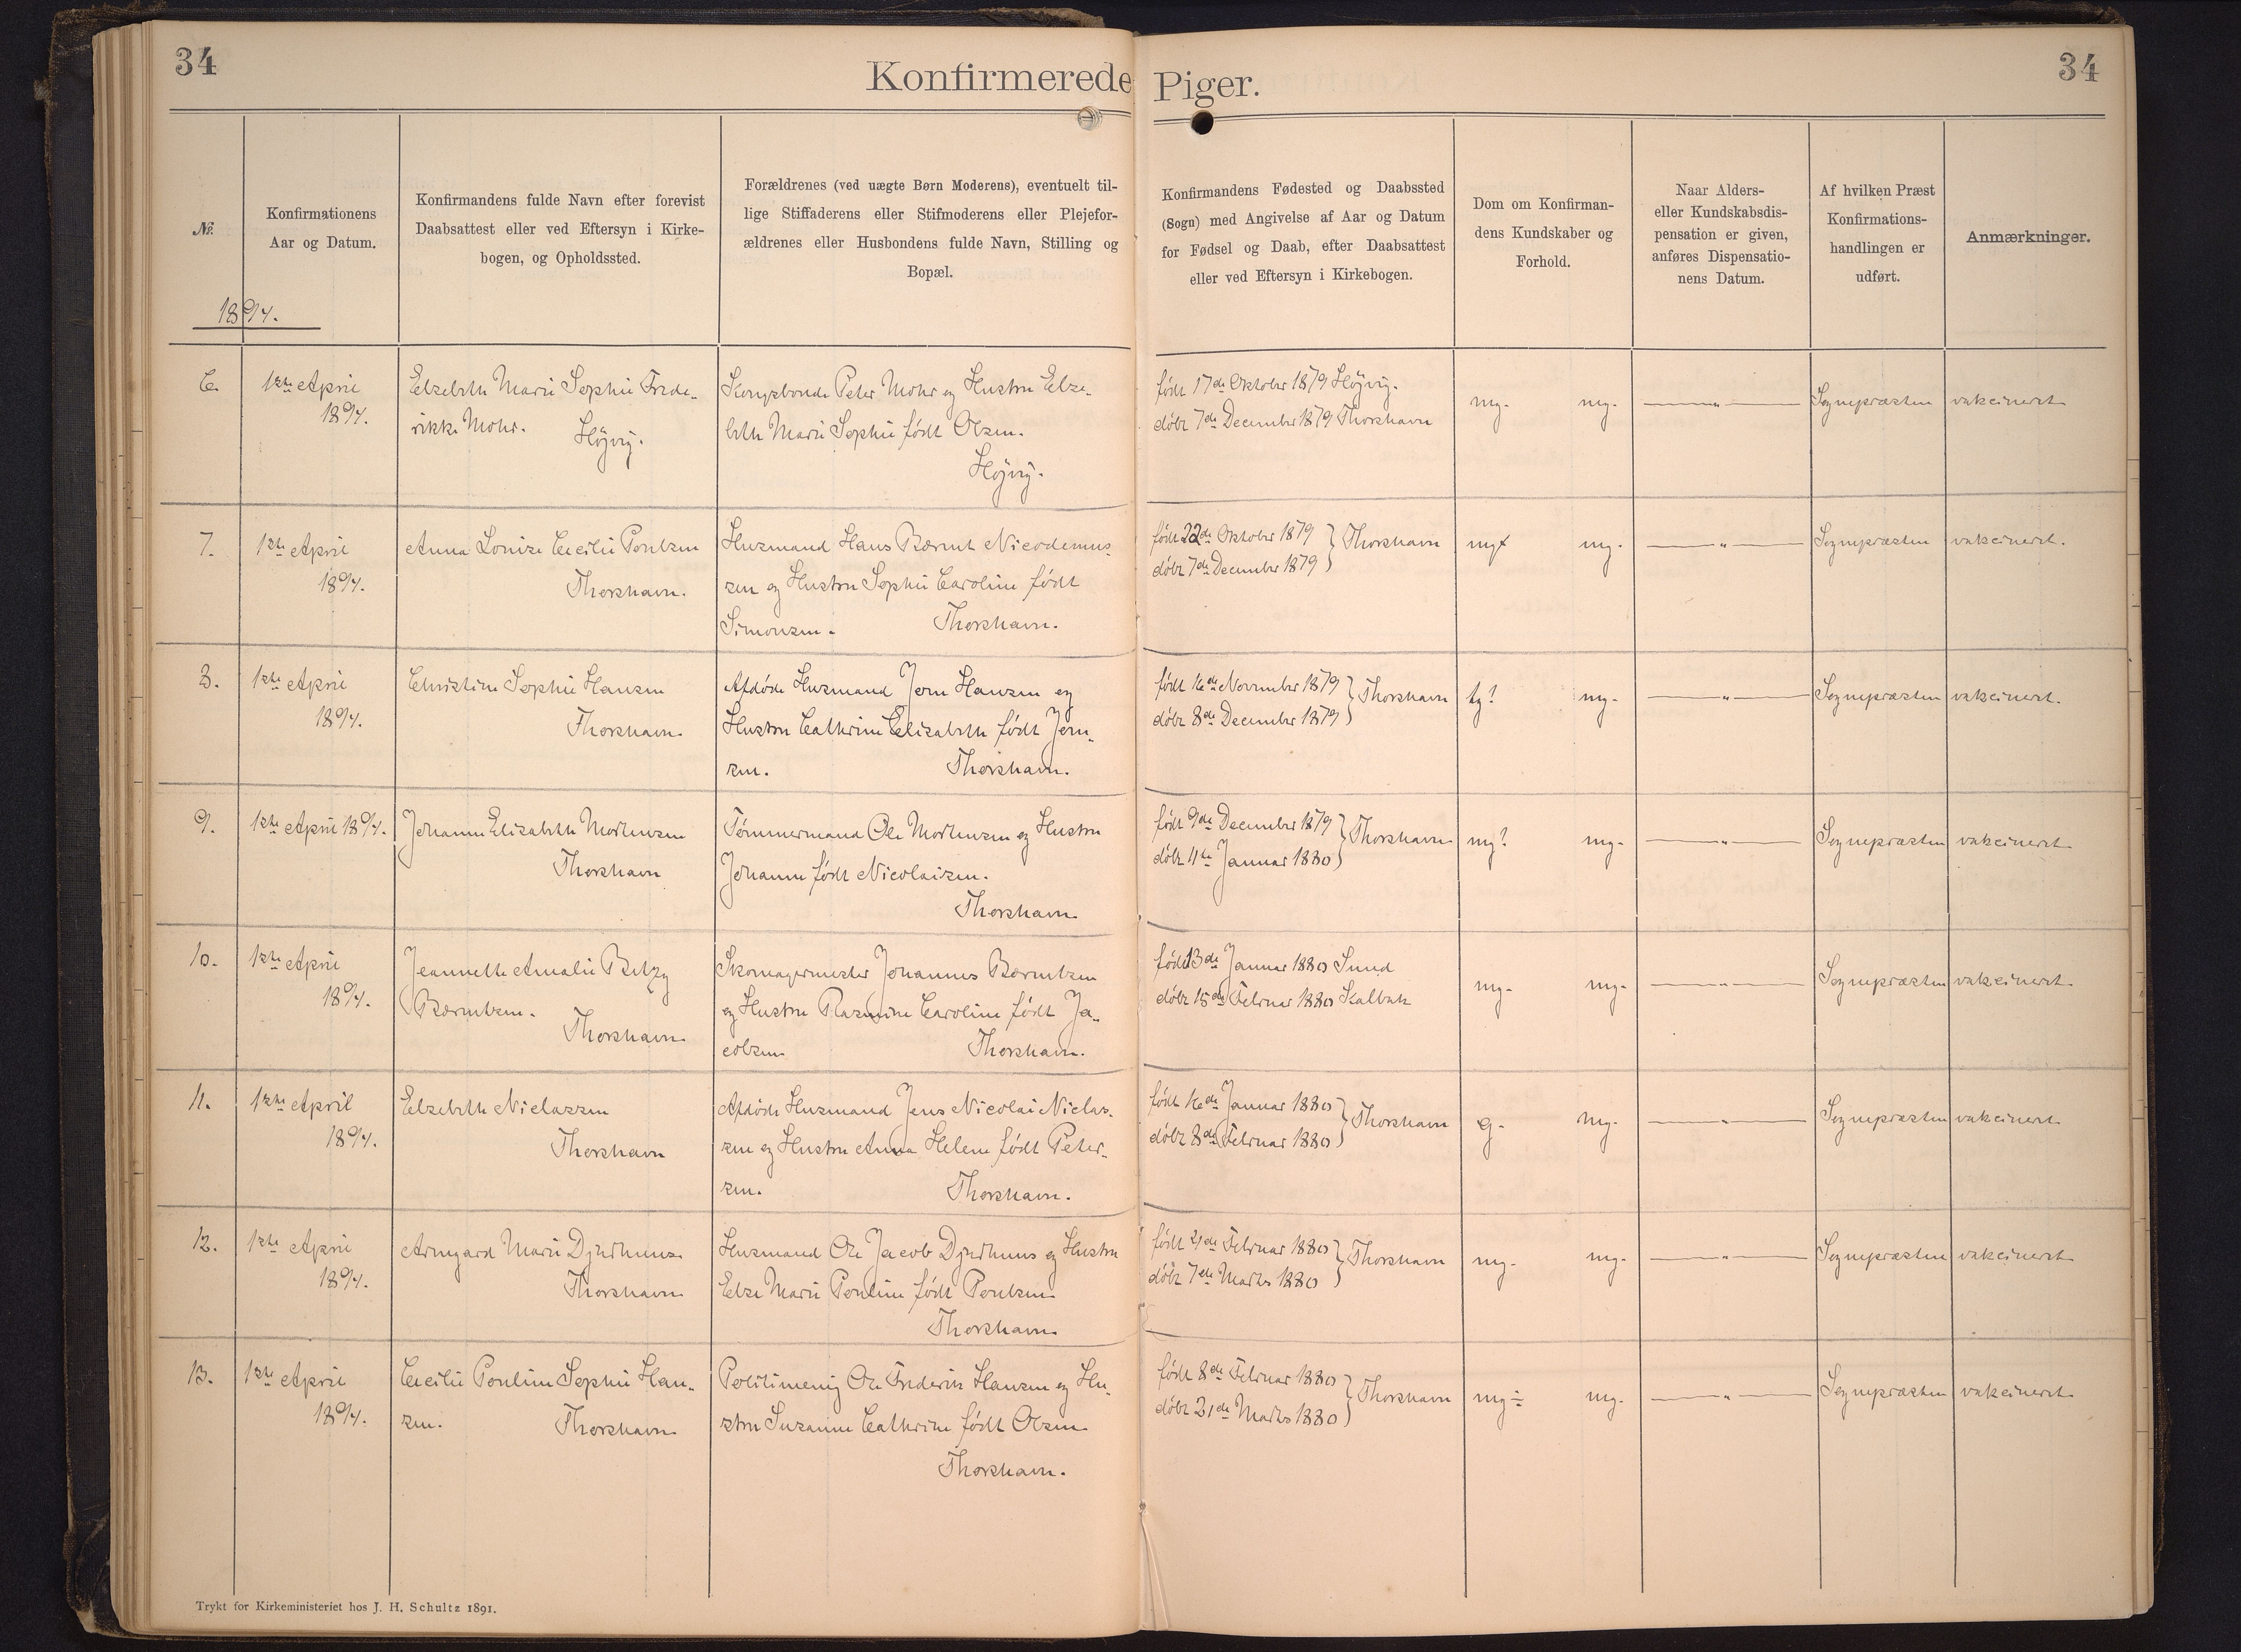 34
Konfirmerede Piger.
34
Nr.
Konfirmationens
Aar og Datum.
Konfirmandens fulde Navn efter forevist
Daabsattest eller ved Eftersyn i Kirke-
bogen, og Opholdssted.
Forældrenes (ved uægte Børn Moderens), eventuelt til-
lige Stiffaderens eller Stifmoderens eller Plejefor-
ældrenes eller Husbondens fulde Navn, Stilling og
Bopæl.
Konfirmandens Fødested og Daabssted
(Sogn) med Angivelse af Aar og Datum
for Fødsel og Daab, efter Daabsattest
eller ved Eftersyn i Kirkebogen.
Dom om Konfirman-
dens Kundskaber og
Forhold.
Naar Alders-
eller Kundskabsdis-
pensation er given,
anføres Dispensatio-
nens Datum.
Af hvilken Præst
Konfirmations-
handlingen er
udført.
Anmærkninger.
1894.
6.
1ste April
1894.
Elsebeth Marie Sophie Frede-
rikke Mohr.
Höjvig.
Kongsbonde Peter Mohr og Hustru Else-
beth Marie Sophie født Olsen.
Höjvig.
født 17de Oktober 1879 Höjvig.
döbt 7de December 1879 Thorshavn
mg. mg.
Sognepræsten
vakcineret
7.
1ste April
1894.
Anna Louise Cecilie Poulsen
Thorshavn.
Husmand Hans Berent Nicodemus-
sen og Hustru Sophie Caroline født
Simonsen.
Thorshavn.
født 22de Oktober 1879
döbt 7de December 1879
Thorshavn
mg+ mg.
Sognepræsten
vakcineret.
8.
1ste April
1894.
Christine Sophie Hansen
Thorshavn.
Afdöde Husmand Joen Hansen og
Hustru Cathrine Elisabeth født Joen-
sen.
Thorshavn.
født 16de November 1879
döbt 8de December 1879
Thorshavn
tg? mg.
Sognepræsten
vakcineret.
9.
1ste April 1894.
Johanne Elisabeth Mortensen
Thorshavn
Tömmermand Ole Mortensen og Hustru
Johanne født Nicolaisen.
Thorshavn.
født 9de December 1879
döbt 11te Januar 1880
Thorshavn
mg? mg.
Sognepræsten
vakcineret
10.
1ste April
1894.
Jeannette Amalie Betzy
Berentsen.
Thorshavn.
Skomagermester Johannes Berentsen
og Hustru Rasmine Caroline født Ja-
cobsen
Thorshavn.
født 13de Januar 1880 Sund
döbt 15de Februar 1880 Kalbak
mg. mg.
Sognepræsten
vakcineret
11.
1ste April
1894.
Elsebeth Niclassen
Thorshavn
Afdöde Husmand Jens Nicolai Niclas-
sen og Hustru Anna Helene født Peter-
sen.
Thorshavn.
født 16de Januar 1880
döbt 8de Februar 1880
Thorshavn
g. mg.
Sognepræsten
vakcineret
12.
1ste April
1894.
Armgard Marie Djurhuus
Thorshavn
Husmand Ole Jacob Djurhuus og Hustru
Else Marie Pouline født Poulsen
Thorshavn
Februar 1880
döbt 7de Marts 1880
Thorshavn
mg. mg.
Sognepræsten
vakcineret
13.
1ste April
1894.
Cecilie Pouline Sophie Han-
sen.
Thorshavn
Politimenig Ole Frederik Hansen og Hu-
stru Susanne Cathrine født Olsen
Thorshavn.
født 8de Februar 1880
döbt 21de Marts 1880
Thorshavn
mg÷ mg.
Sognepræsten
vakcineret
Trykt for Kirkeministeriet hos J. H. Schultz 1891.